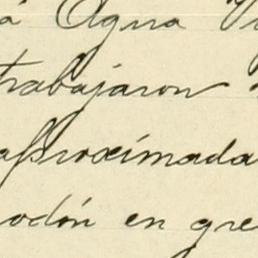 a Agua
trabajaron
aproximada
odón en gre